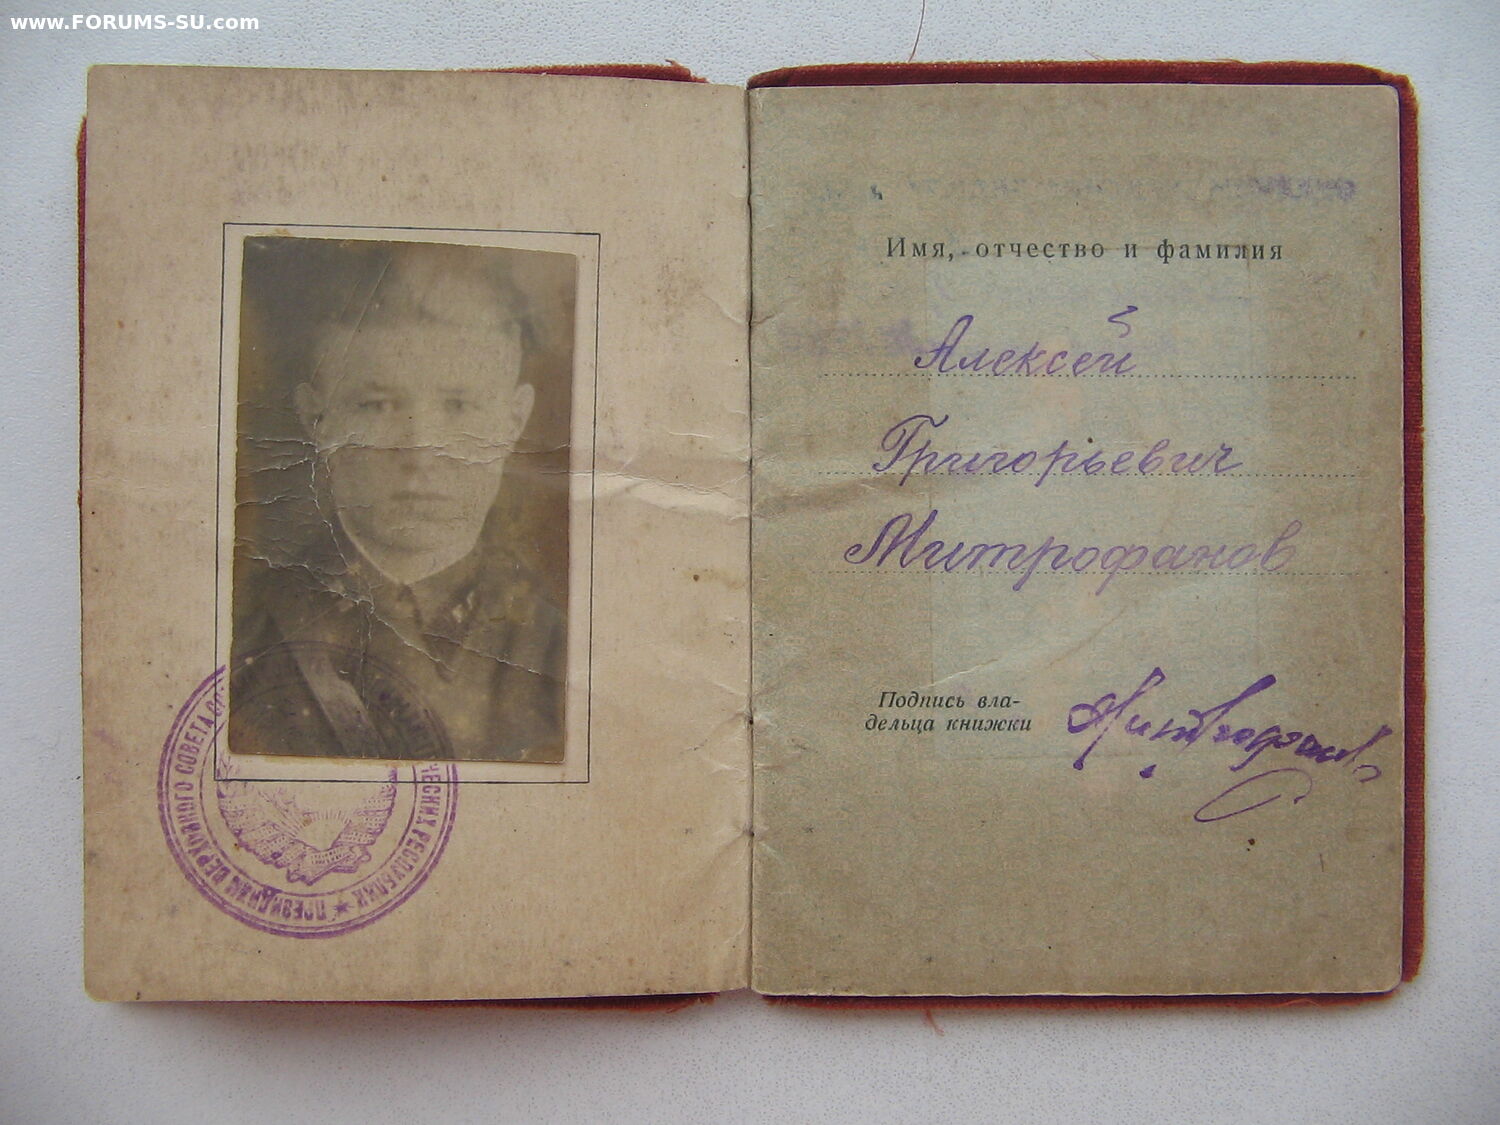 www.FORUMS-SU.com
Имя, отчество и фамилия
Алексей
Григорьевич
Митрофанов
Подпись вла-
дельца книжки
Митрофанов
ПРЕЗИДИУМ ВЕРХОВНОГО СОВЕТА СО
ЧЕСКИХ РЕСПУБЛИК